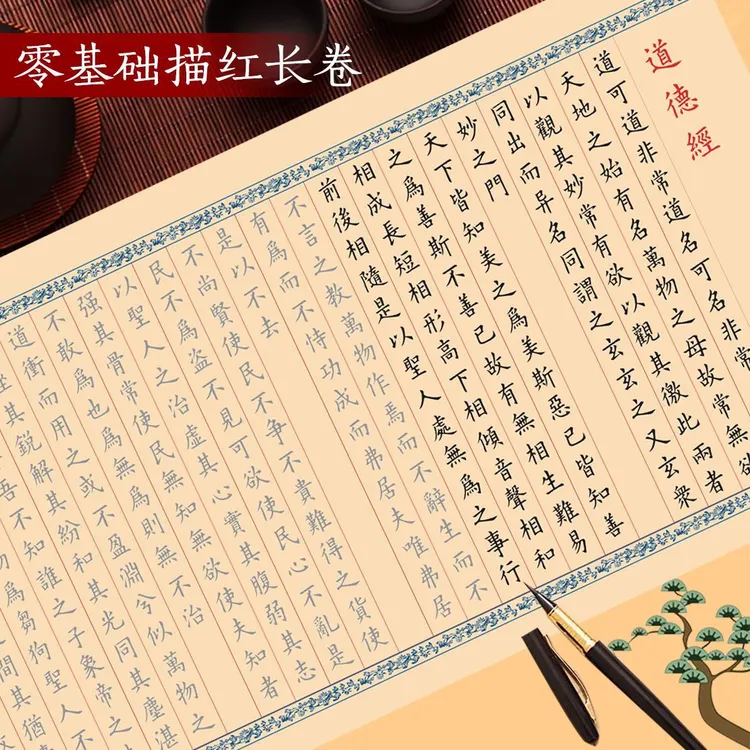 零基础描红长卷
道德經
道可道非常道名可名非常
天地之始有名萬物之母故常無欲
以觀其妙常有欲以觀其徼此兩者
同出而异名同謂之玄玄之又玄衆
妙之門
天下皆知美之爲美斯惡已皆知善
之爲善斯不善已故有無相生難易
相成長短相形高下相傾音聲相和
前後相隨是以聖人處無爲之事行
不言之教萬物作焉而不辭生而不
有爲而不恃功成而弗居夫唯弗居
是以不去
不尚賢使民不争不貴難得之貨使
民不爲盗不見可欲使民心不亂是
以聖人之治虚其心實其腹弱其志
强其骨常使民無知無欲使夫知者
不敢爲也爲無爲則無不治
道衝而用之或不盈淵兮似萬物之
其鋭解其紛和其光同其塵湛
吾不知誰之子象帝之
爲芻狗聖人不
間其猶